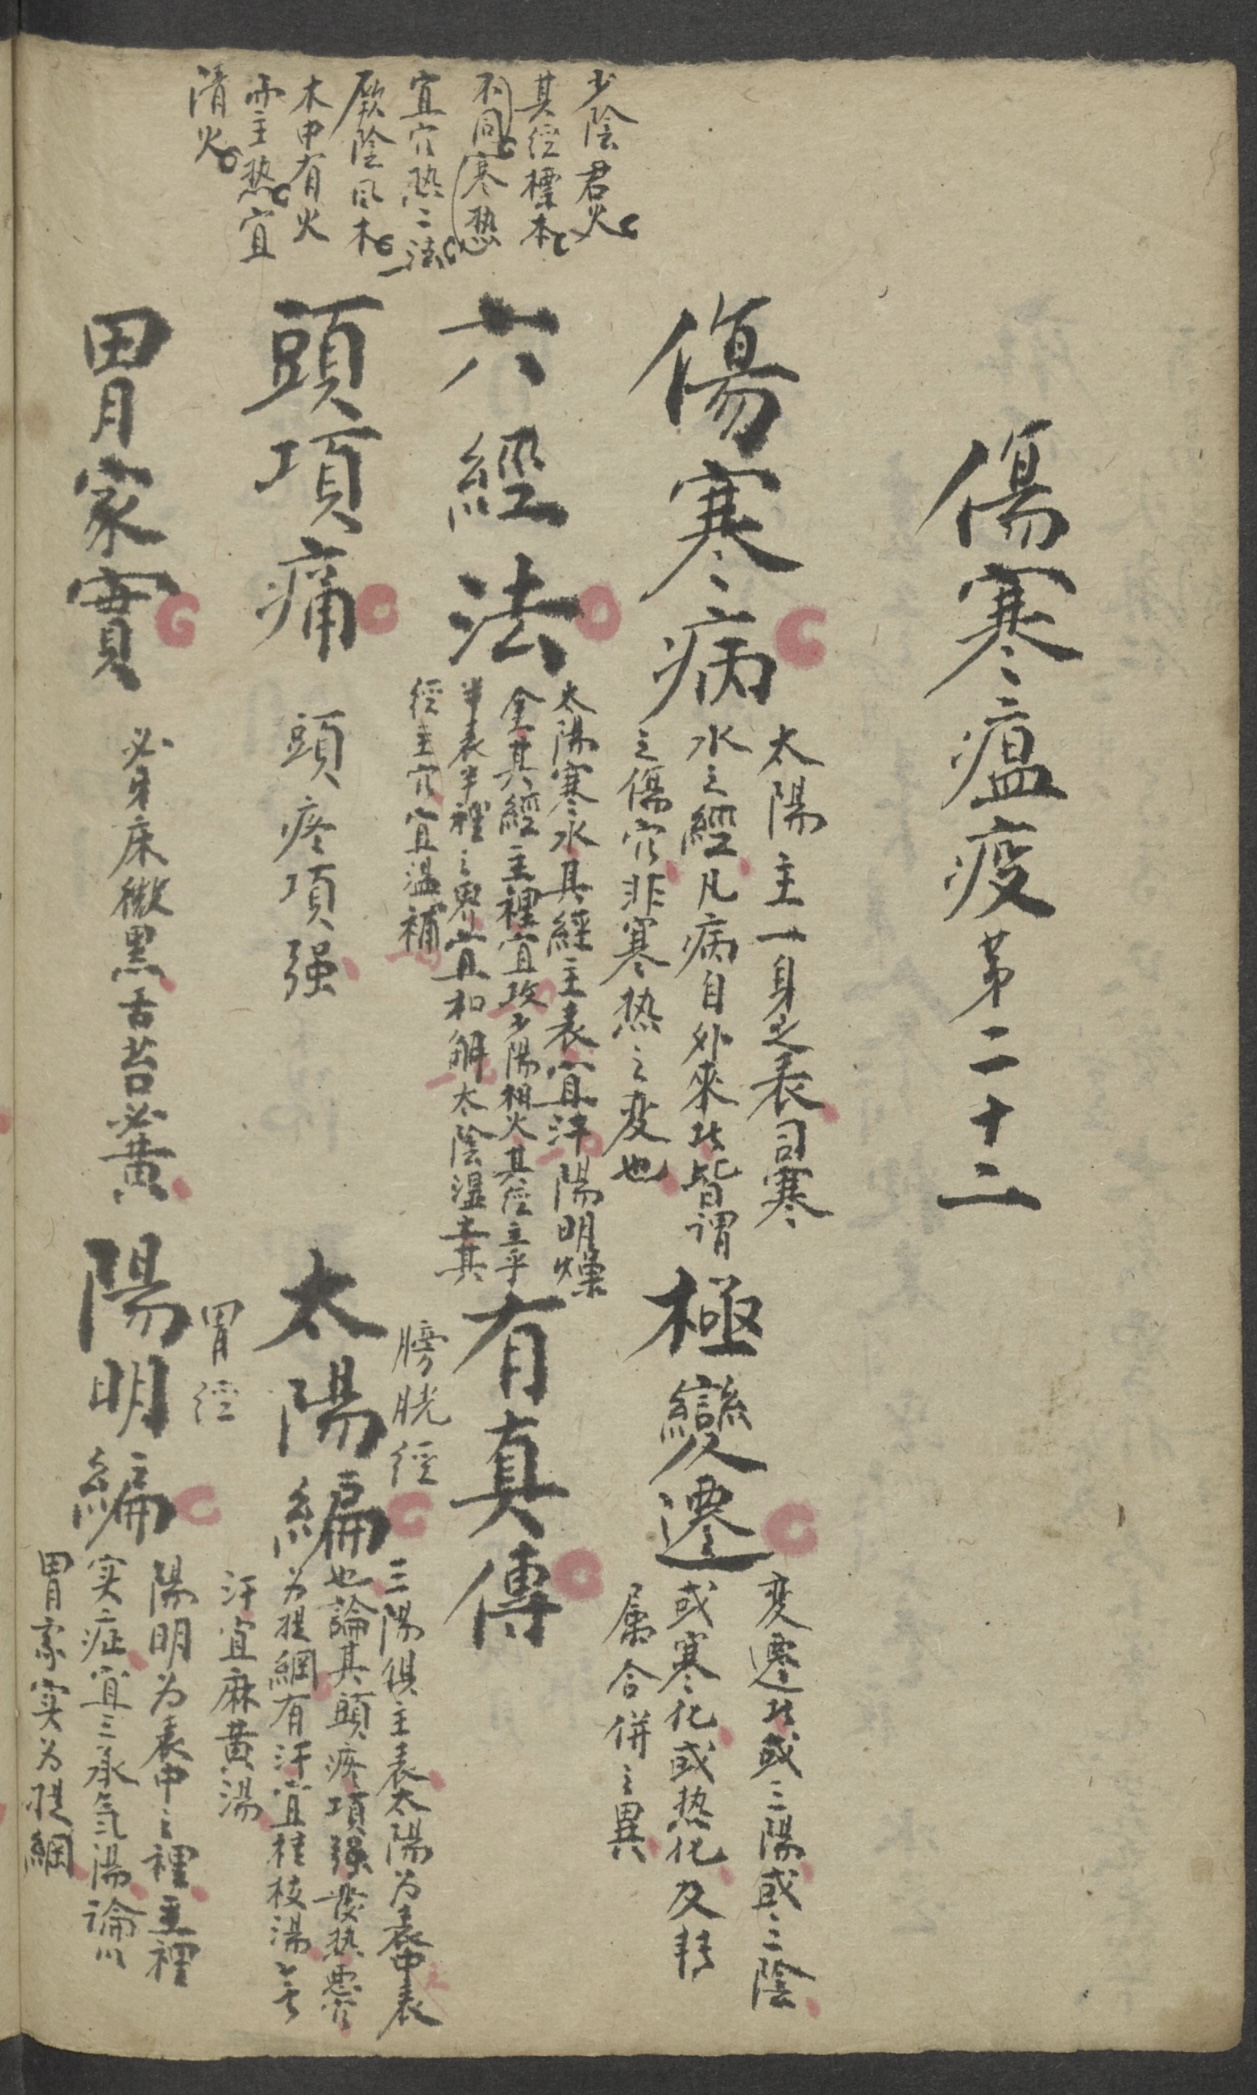 傷寒瘟疫第二十二
傷寒病
太陽主一身之表司寒
水之經凡病自外來者皆謂
之傷寒非寒热之变也
極變遷
变遷者或三陽或三陰
或寒化或热化及轉
属合併之異
少陰君火
其經標本
不同寒热
宜寒热二法
厥陰風木
木中有火
而主热宜
清火
六經法
太陽寒水其經主表宜汗陽明燥
金其經主裡宜攻少陽相火其經主乎
半表半裡之界宜和解太陰濕土其
經主寒宜溫補
有真傳
頭項痛
頭疼項强
膀胱經
太陽編
三陽俱主表太陽为表中表
也論其頭疼項强發热惡寒
为提綱有汗宜桂枝湯無
汗宜麻黄湯
胃家實
必牙床微黑舌苔必黄
胃經
陽明編
陽明为表中之裡主裡
实症宜三承氣湯論以
胃家实为提綱